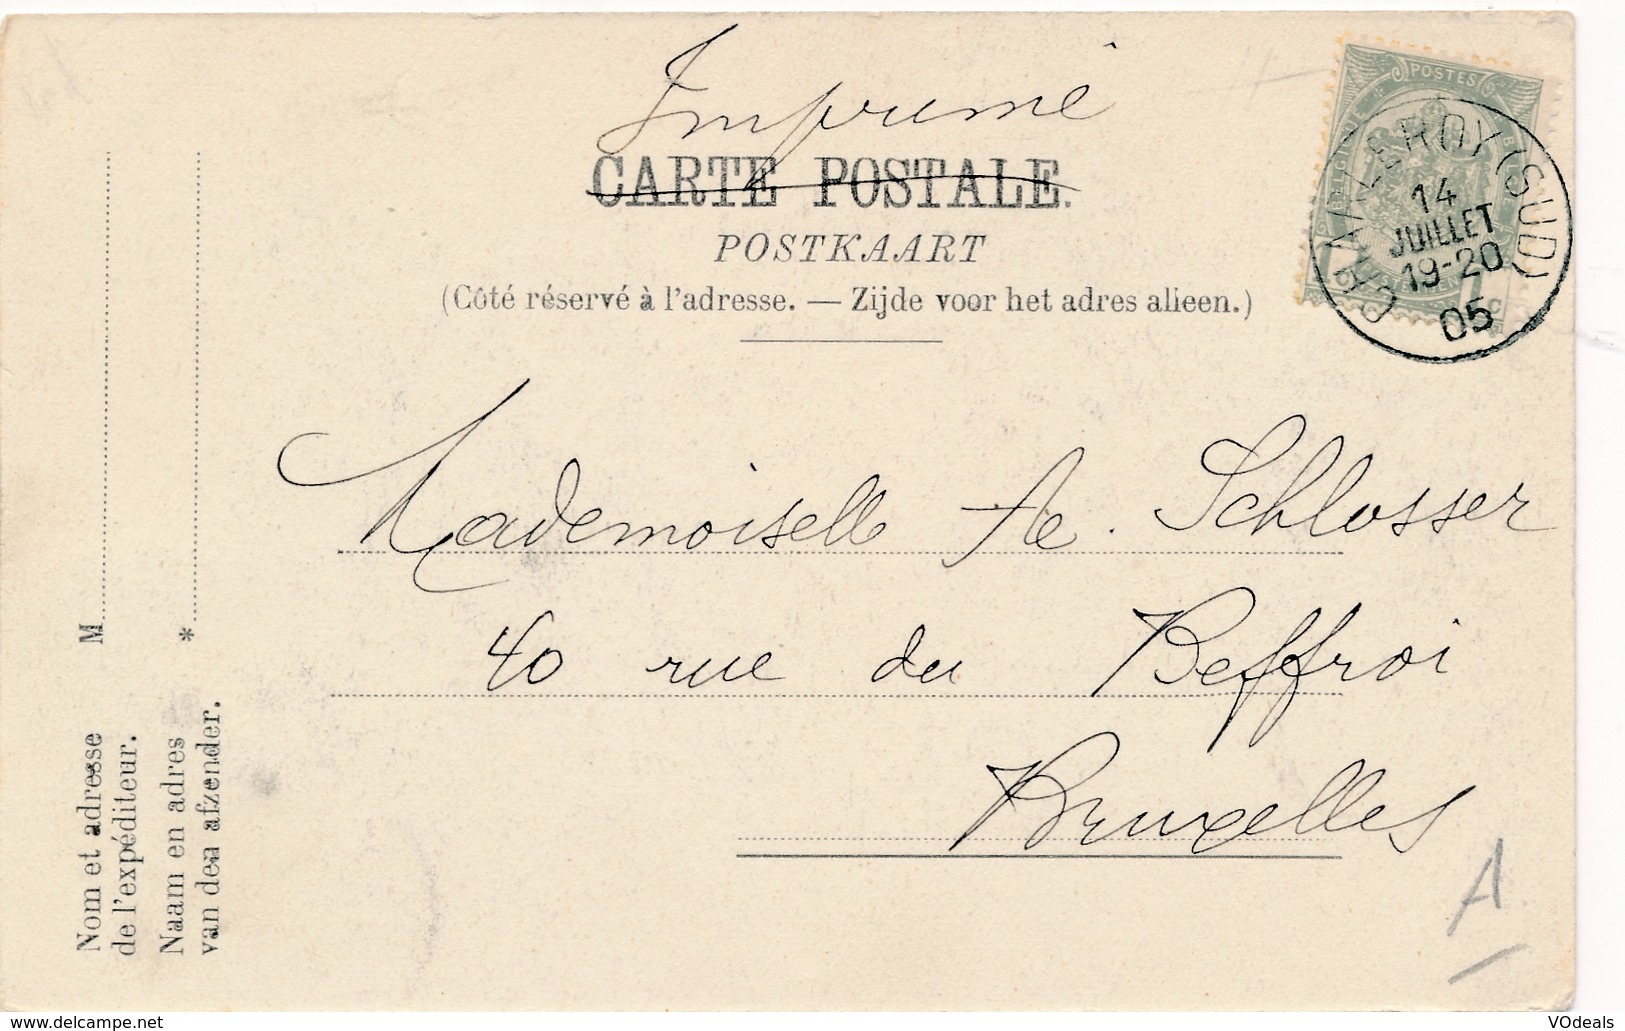 Imprimé
CARTE POSTALE.
POSTKAART
(Côté réservé à l'adresse. — Zijde voor het adres alieen.)
POSTES
BELGIQUE
1c
CHARLEROY (SUD)
14
JUILLET
19-20
05
Mademoiselle Ae. Schlosser
40 rue du Beffroi
Bruxelles
A
Nom et adresse
de l'expéditeur.
M
Naam en adres
van den afzender.
*
www.delcampe.net
VOdeals